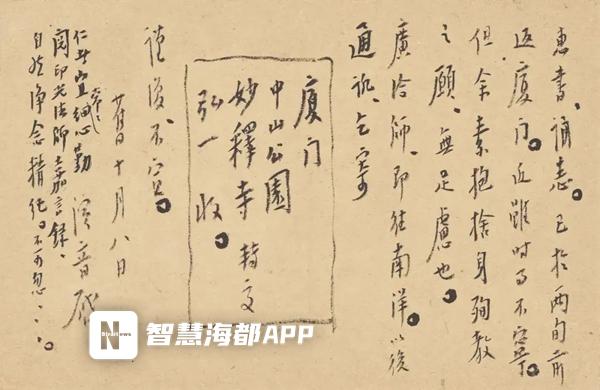 惠書、誦悉。已於兩旬前
返廈门。近雖时局不寧。
但余素抱捨身殉教
之願、無足慮也。
廣洽師、即往南洋。以後
通訊、乞寄
廈门
中山公園
妙釋寺 转交
弘一 收。
謹復、不宣。
十月八日
演音 啟
仁者宜細心勤
閱印光法師嘉言錄。
自然淨念精純。不可忽
N
智慧海都APP